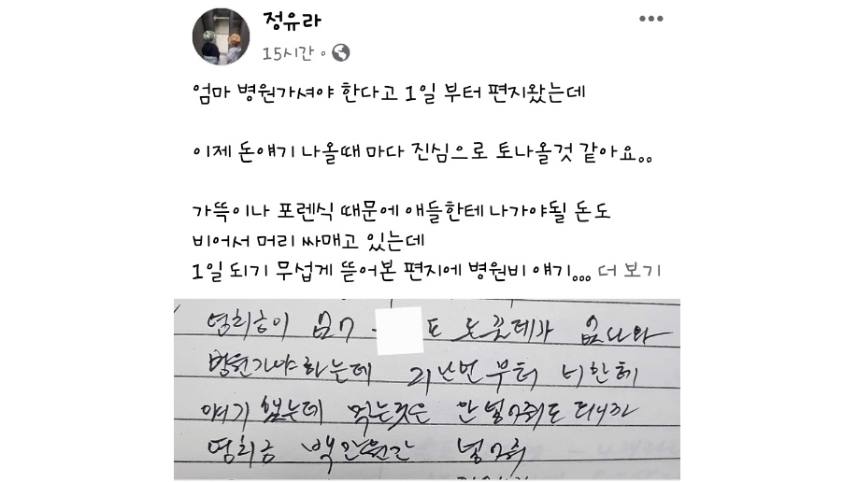 정유라
15시간
엄마 병원가셔야 한다고 1일 부터 편지왔는데
이제 돈얘기 나올때 마다 진심으로 토나올것 같아요..
가뜩이나 포렌식 때문에 애들한테 나가야될 돈도
비어서 머리 싸매고 있는데
1일 되기 무섭게 뜯어본 편지에 병원비 얘기... 더 보기
영희금이
병원가야하는데 지난번 부터 너한테
얘기 했는데 먹는것은 안 넣어줘도 되니까
영희금 백만원만 넣어줘